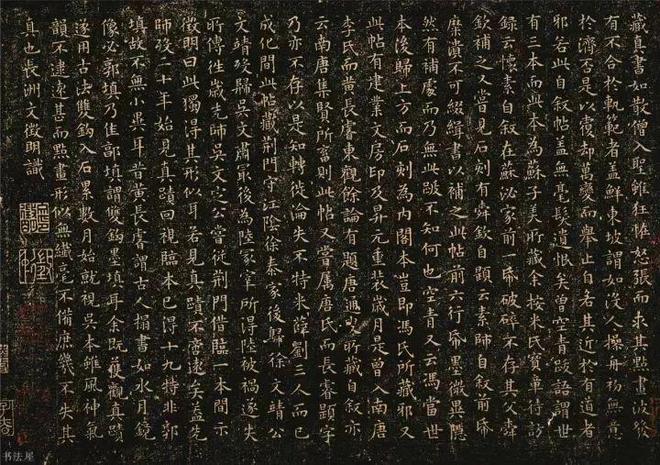 藏真書如散僧入聖雖狂怪怒張而求其點畫波發
有不合於軌範者蓋鮮東坡謂如沒人操舟初無意
於濟否是以覆却萬變而舉止自若其近於有道者
邪若此自叙帖蓋無毫髮遺恨矣曾空青跋語謂世
有三本而此本為蘇子美所藏余按米氏寶章待訪
錄云懷素自叙在蘇泌家前一帋破碎不存其父舜
欽補之又嘗見石刻有舜欽自題云素師自叙前帋
糜潰不可綴緝書以補之此帖前六行帋墨微異隱
然有補處而乃無此跋不知何也空青又云馮當世
本後歸上方而石刻為內閣本豈即馮氏所藏邪又
此帖有建業文房印及昇元重裝歲月是曾入南唐
李氏而黃長睿東觀餘論有題唐通叟所藏自叙亦
云南唐集賢所畜則此帖又嘗屬唐氏而長睿題字
乃亦不存以是知轉徙淪失不特米薛劉三人而已
成化間此帖藏荊門守江陰徐泰家後歸徐文靖公
文靖歿歸吳文肅最後為陸冢宰所得陸被禍遂失
所傳往歲先師吳文定公嘗從荊門借臨一本間示
徵明曰此獨得其形似耳若見真蹟不啻遠矣蓋先
師歿二十年始見真蹟回視臨本已得十九特非郭
填故不無小異耳昔黃長睿謂古人搨書如水月鏡
像必郭填乃佳郭填謂雙鈎墨填耳余既獲觀真蹟
遂用古法雙鈎入石累數月始就視吳本雖風神氣
韻不逮遠甚而點畫形似無纖毫不備庶幾不失其
真也長洲文徵明識
书法屋